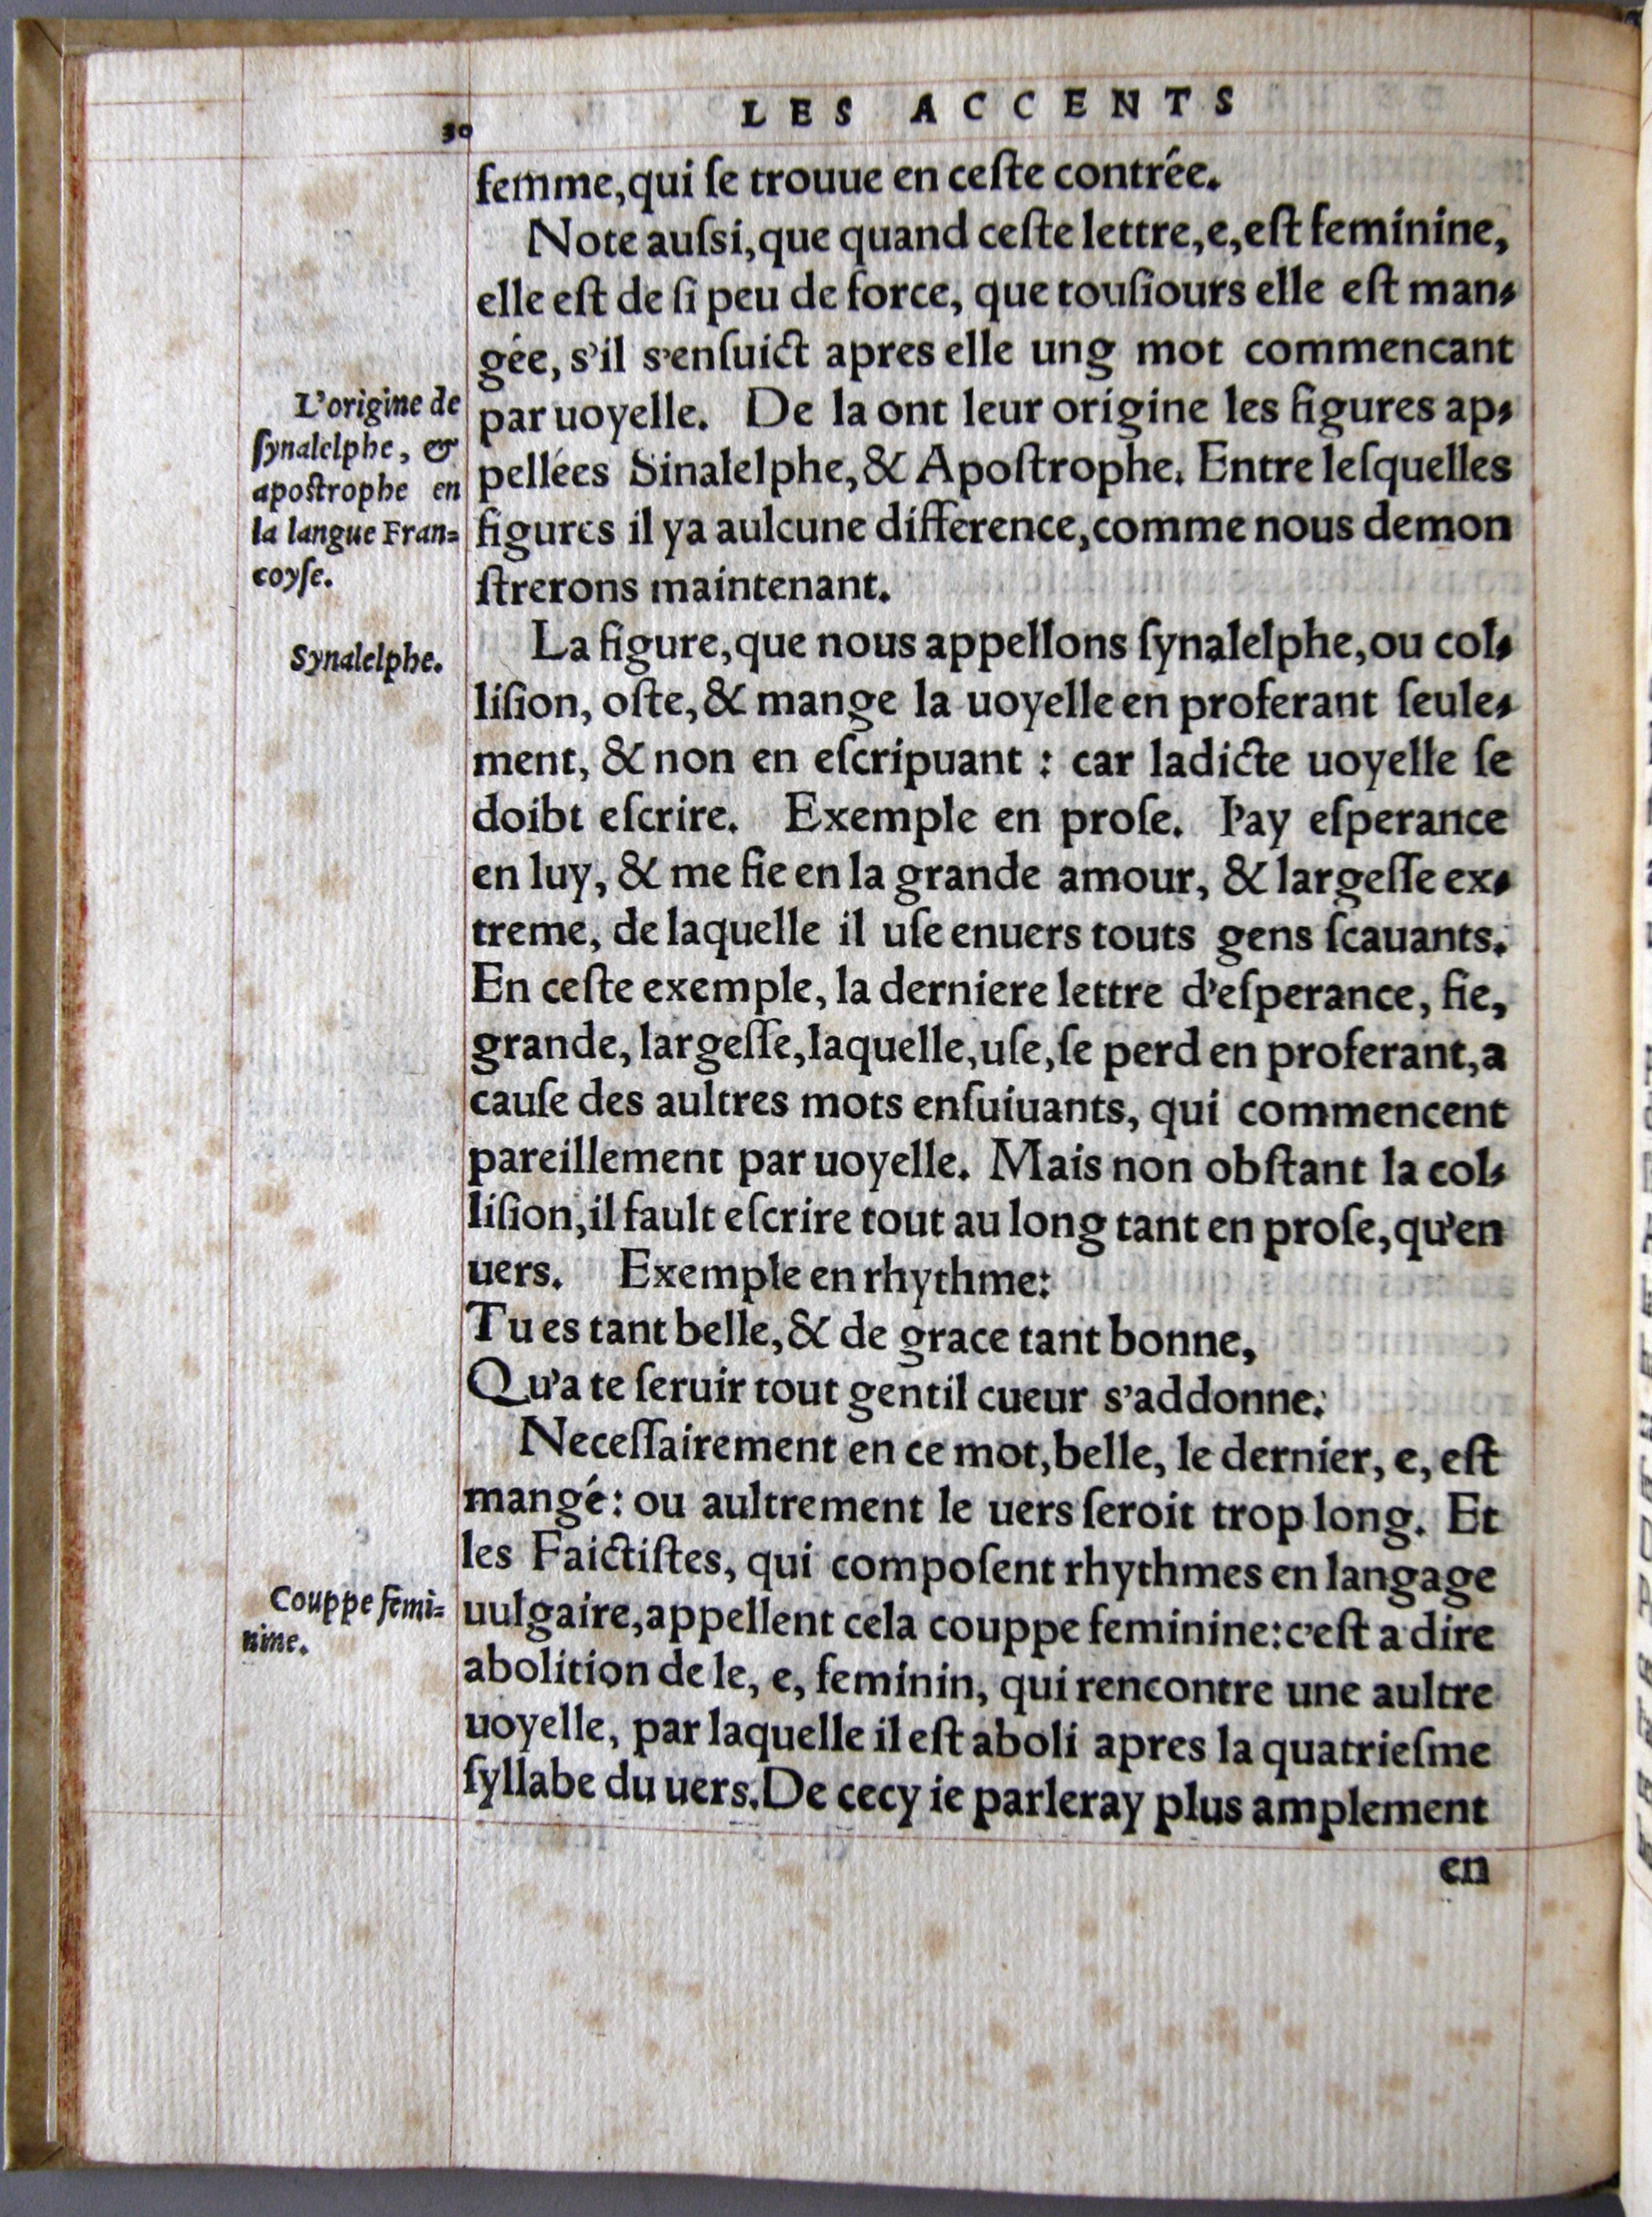 30
LES ACCENTS
femme,qui ſe trouue en ceſte contrée.
Note auſsi,que quand ceſte lettre,e,eſt feminine,
elle eſt de ſi peu de force, que touſiours elle eſt man-
gée, s'il s'enſuict apres elle ung mot commencant
par uoyelle. De la ont leur origine les figures ap-
pellées Sinalelphe,& Apoſtrophe. Entre leſquelles
figures il ya aulcune difference,comme nous demon
ſtrerons maintenant.
La figure,que nous appellons ſynalelphe,ou col-
liſion, oſte,& mange la uoyelle en proferant ſeule-
ment, & non en eſcripuant : car ladicte uoyelle ſe
doibt eſcrire. Exemple en proſe. I'ay eſperance
en luy, & me fie en la grande amour, & largeſſe ex-
treme, de laquelle il uſe enuers touts gens ſcauants.
En ceſte exemple, la derniere lettre d'eſperance, fie,
grande, largeſſe,laquelle,uſe,ſe perd en proferant,a
cauſe des aultres mots enſuiuants, qui commencent
pareillement par uoyelle. Mais non obſtant la col-
liſion,il fault eſcrire tout au long tant en proſe,qu'en
uers. Exemple en rhythme:
Tu es tant belle,& de grace tant bonne,
Qu'a te ſeruir tout gentil cueur s'addonne.
Neceſſairement en ce mot,belle, le dernier, e, eſt
mangé: ou aultrement le uers ſeroit trop long. Et
les Faictiſtes, qui compoſent rhythmes en langage
uulgaire,appellent cela couppe feminine:c'eſt a dire
abolition de le, e, feminin, qui rencontre une aultre
uoyelle, par laquelle il eſt aboli apres la quatrieſme
ſyllabe du uers.De cecy ie parleray plus amplement
en
L'origine de
ſynalelphe, &
apoſtrophe en
la langue Fran=
coyſe.
Synalelphe.
Couppe femi=
nine.